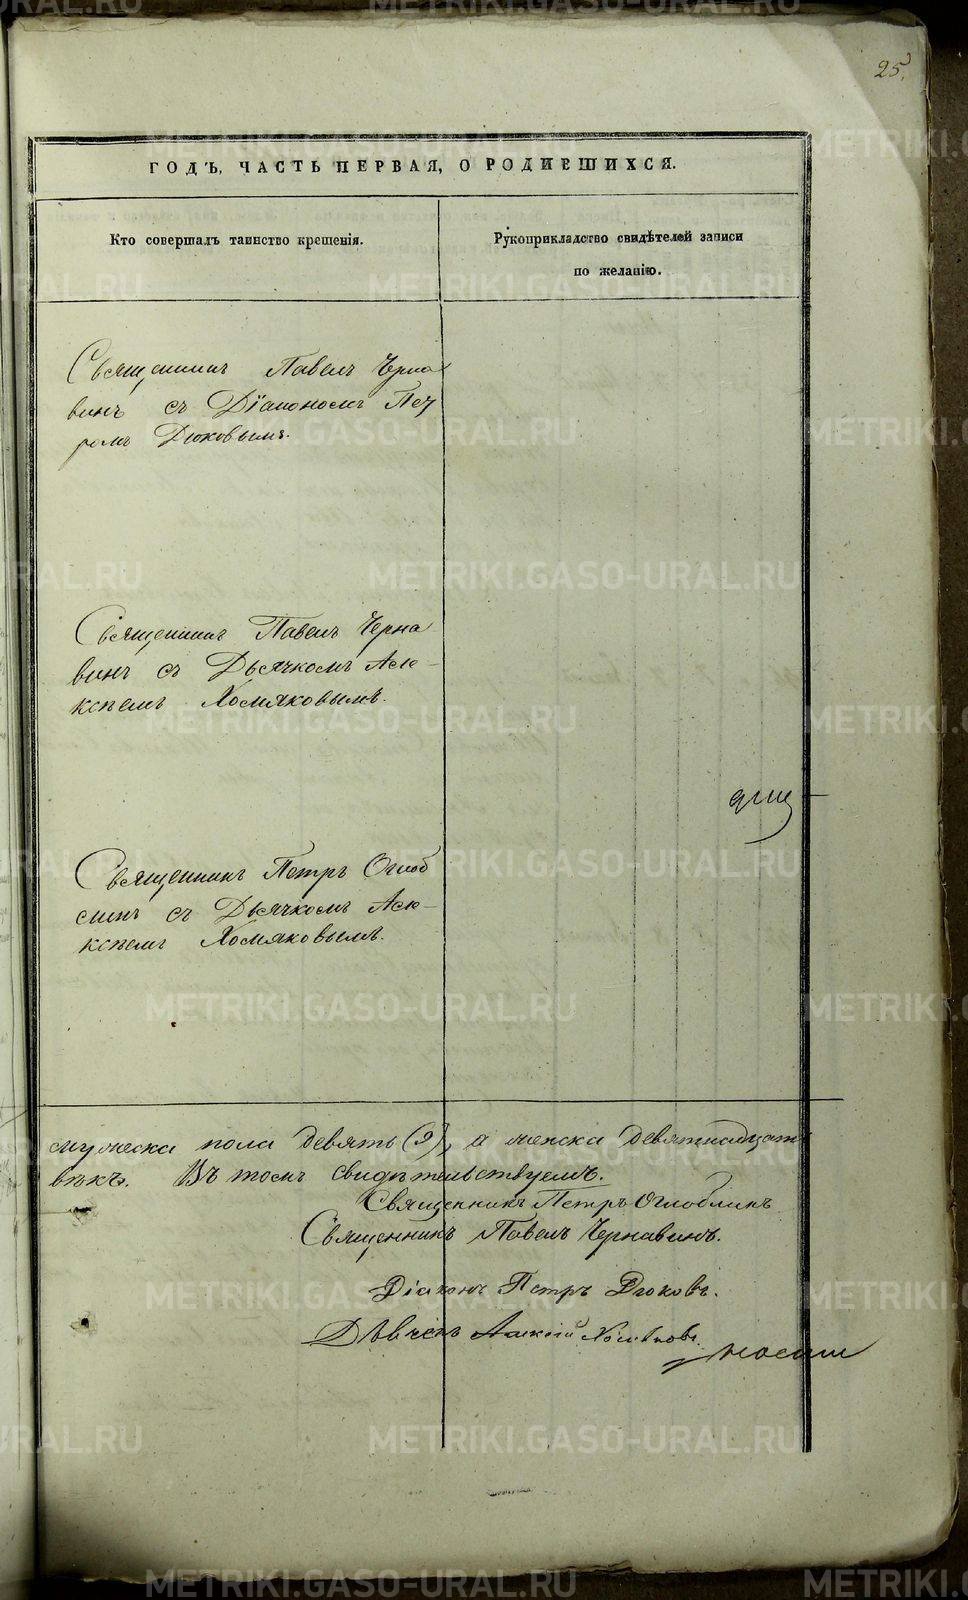 25.
ГОДЪ, ЧАСТЬ ПЕРВАЯ, О РОДИВШИХСЯ.
Кто совершалъ таинство крещенія.
Рукоприкладство свидѣтелей записи
по желанію.
Священникъ Павелъ Черна
винъ съ Діакономъ Пет
ромъ Дюковымъ.
Священникъ Павелъ Черна
винъ съ Дьячкомъ Але-
ксѣемъ Хомяковымъ.
Священникъ Петръ Оглоб
линъ съ Дьячкомъ Але-
ксѣемъ Хомяковымъ.
мужеска пола девять (9), а женска девятнадцать
вѣкъ. Въ томъ свидѣтельствуемъ.
Священникъ Петръ Оглоблинъ
Священникъ Павелъ Чернавинъ.
Діаконъ Петръ Дюковъ.
Алексій Хомяковъ.
METRIKI.GASO-URAL.RU